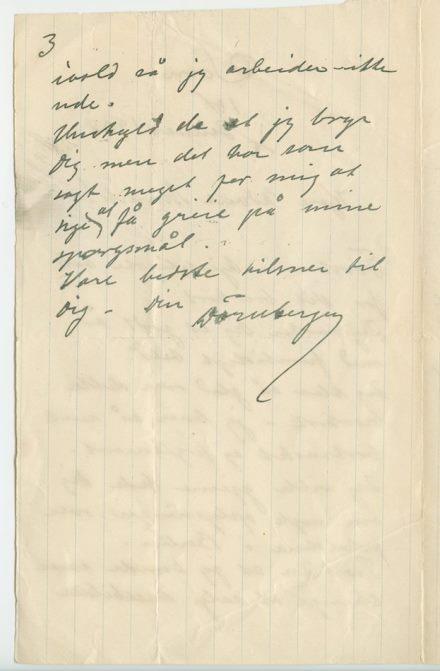 3
ivold så jeg arbeider ikke
ude.
Undskyld da at jeg bryr
dig men det har som
sagt meget for mig at
sige at få greie på mine
spørgsmål.
Vare bedste hilsner til
dig. Din Dörnberger